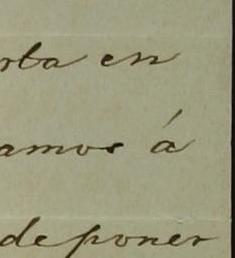 rta en
amos á
de poner